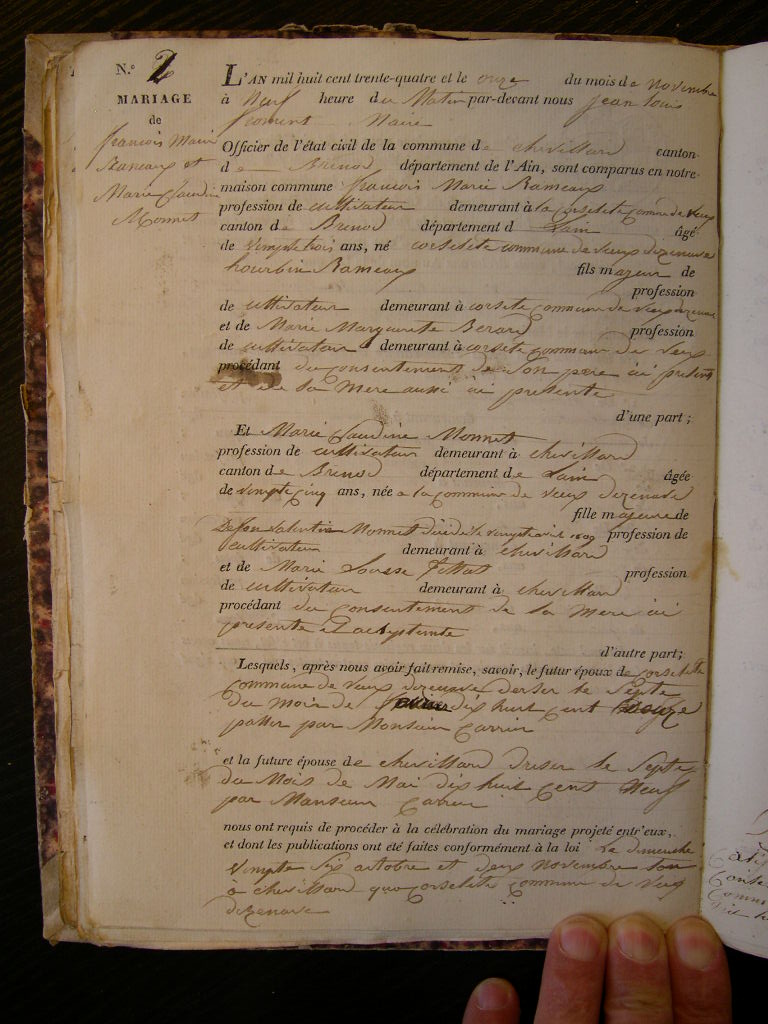 N.º 2
MARIAGE
de
francois Marie
Rameaux et
Marie Claudine
Monnet
L'AN mil huit cent trente-quatre et le onze du mois de novembre
à Neuf heure du Matin par-devant nous jean louis
froment Maire
Officier de l'état civil de la commune de chevillard canton
de Brenod département de l'Ain, sont comparus en notre
maison commune francois Marie Rameaux
profession de cultivateur demeurant à la corselete Comune de vieux
canton de Brenod département d Lain âgé
de vingt trois ans, né corselete commune de vieux dizenave
Rameaux fils majeur de
profession
de cultivateur demeurant à corselete Commune de vieux
et de Marie Marguerite Berard profession
de cultivateur demeurant à corselete Commune de vieux
procédant du consentement de son pere ici present
et de la Mere aussi ici presente
d'une part;
Et Marie Claudine Monnet
profession de cultivateur demeurant à chevillard
canton de Brenod département de Lain âgée
de vingte cinq ans, née a la commune de vieux dizenave
fille majeure de
De feu valentin Monnet profession de
cultivateur demeurant à chevillard
et de Marie Louise profession
de cultivateur demeurant à chevillard
procédant du Consentement de la mere ici
presente
d'autre part;
Lesquels, après nous avoir fait remise, savoir, le futur époux de corselete
commune de vieux dizenave le Septe
du Mois de dix huit Cent
par Monsieur Carrier
et la future épouse de chevillard le Septe
du Mois de Mai dix huit Cent Neuf
par Monsieur Carrier
nous ont requis de procéder à la célébration du mariage projeté entr'eux,
et dont les publications ont été faites conformément à la loi Le dimenche
vingte Six octobre et deux novembre
à chevillard que corselete commune de vieux
dizenave